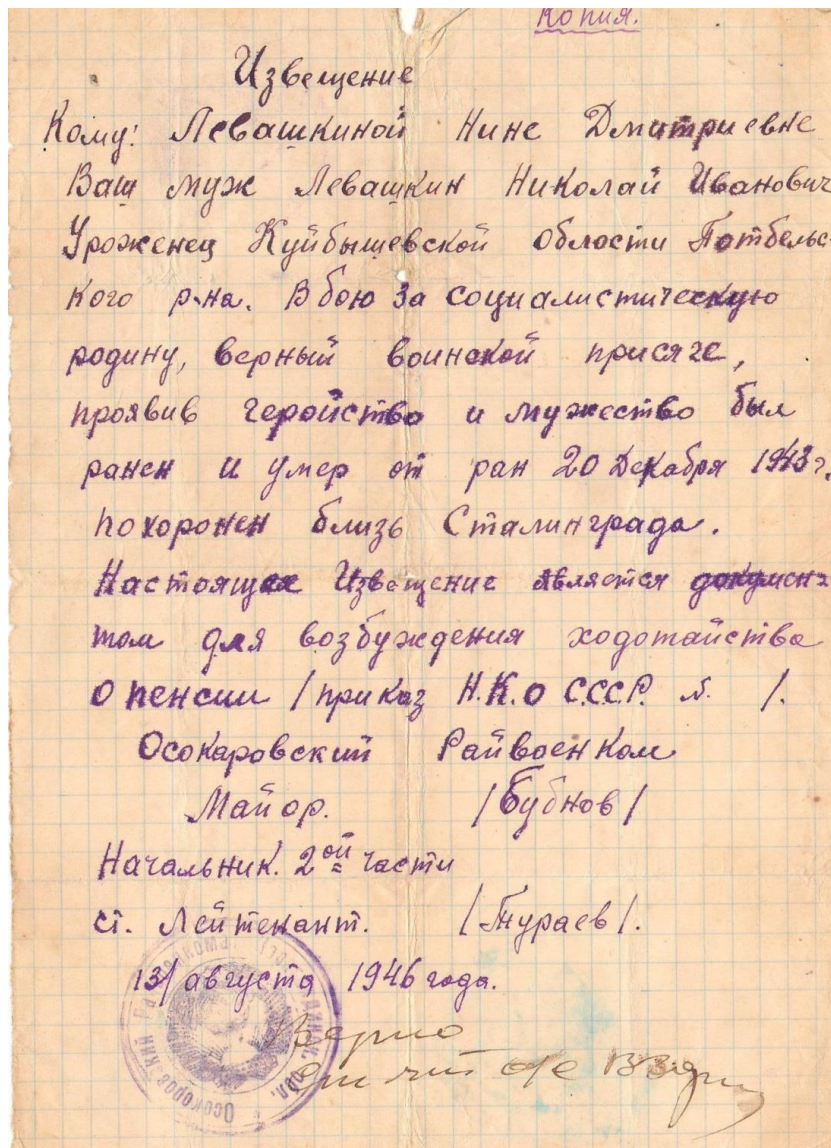 Копия.
Извещение
Кому: Левашкиной Нине Дмитриевне
Ваш муж Левашкин Николай Иванович
Уроженец Куйбышевской области Потбельс-
кого р-на. В бою за социалистическую
родину, верный воинской присяге,
проявив геройство и мужество был
ранен и умер от ран 20 Декабря 1943 г.
похоронен близь Сталинграда.
Настоящее Извещение является докумен-
том для возбуждения ходотайства
о пенсии / приказ Н.К.О С.С.С.Р. №. /.
Осокаровский Райвоенком
Майор. /Бубнов/
Начальник. 2ой части
ст. Лейтенант. /Тураев/.
13/ августа 1946 года.
Верно